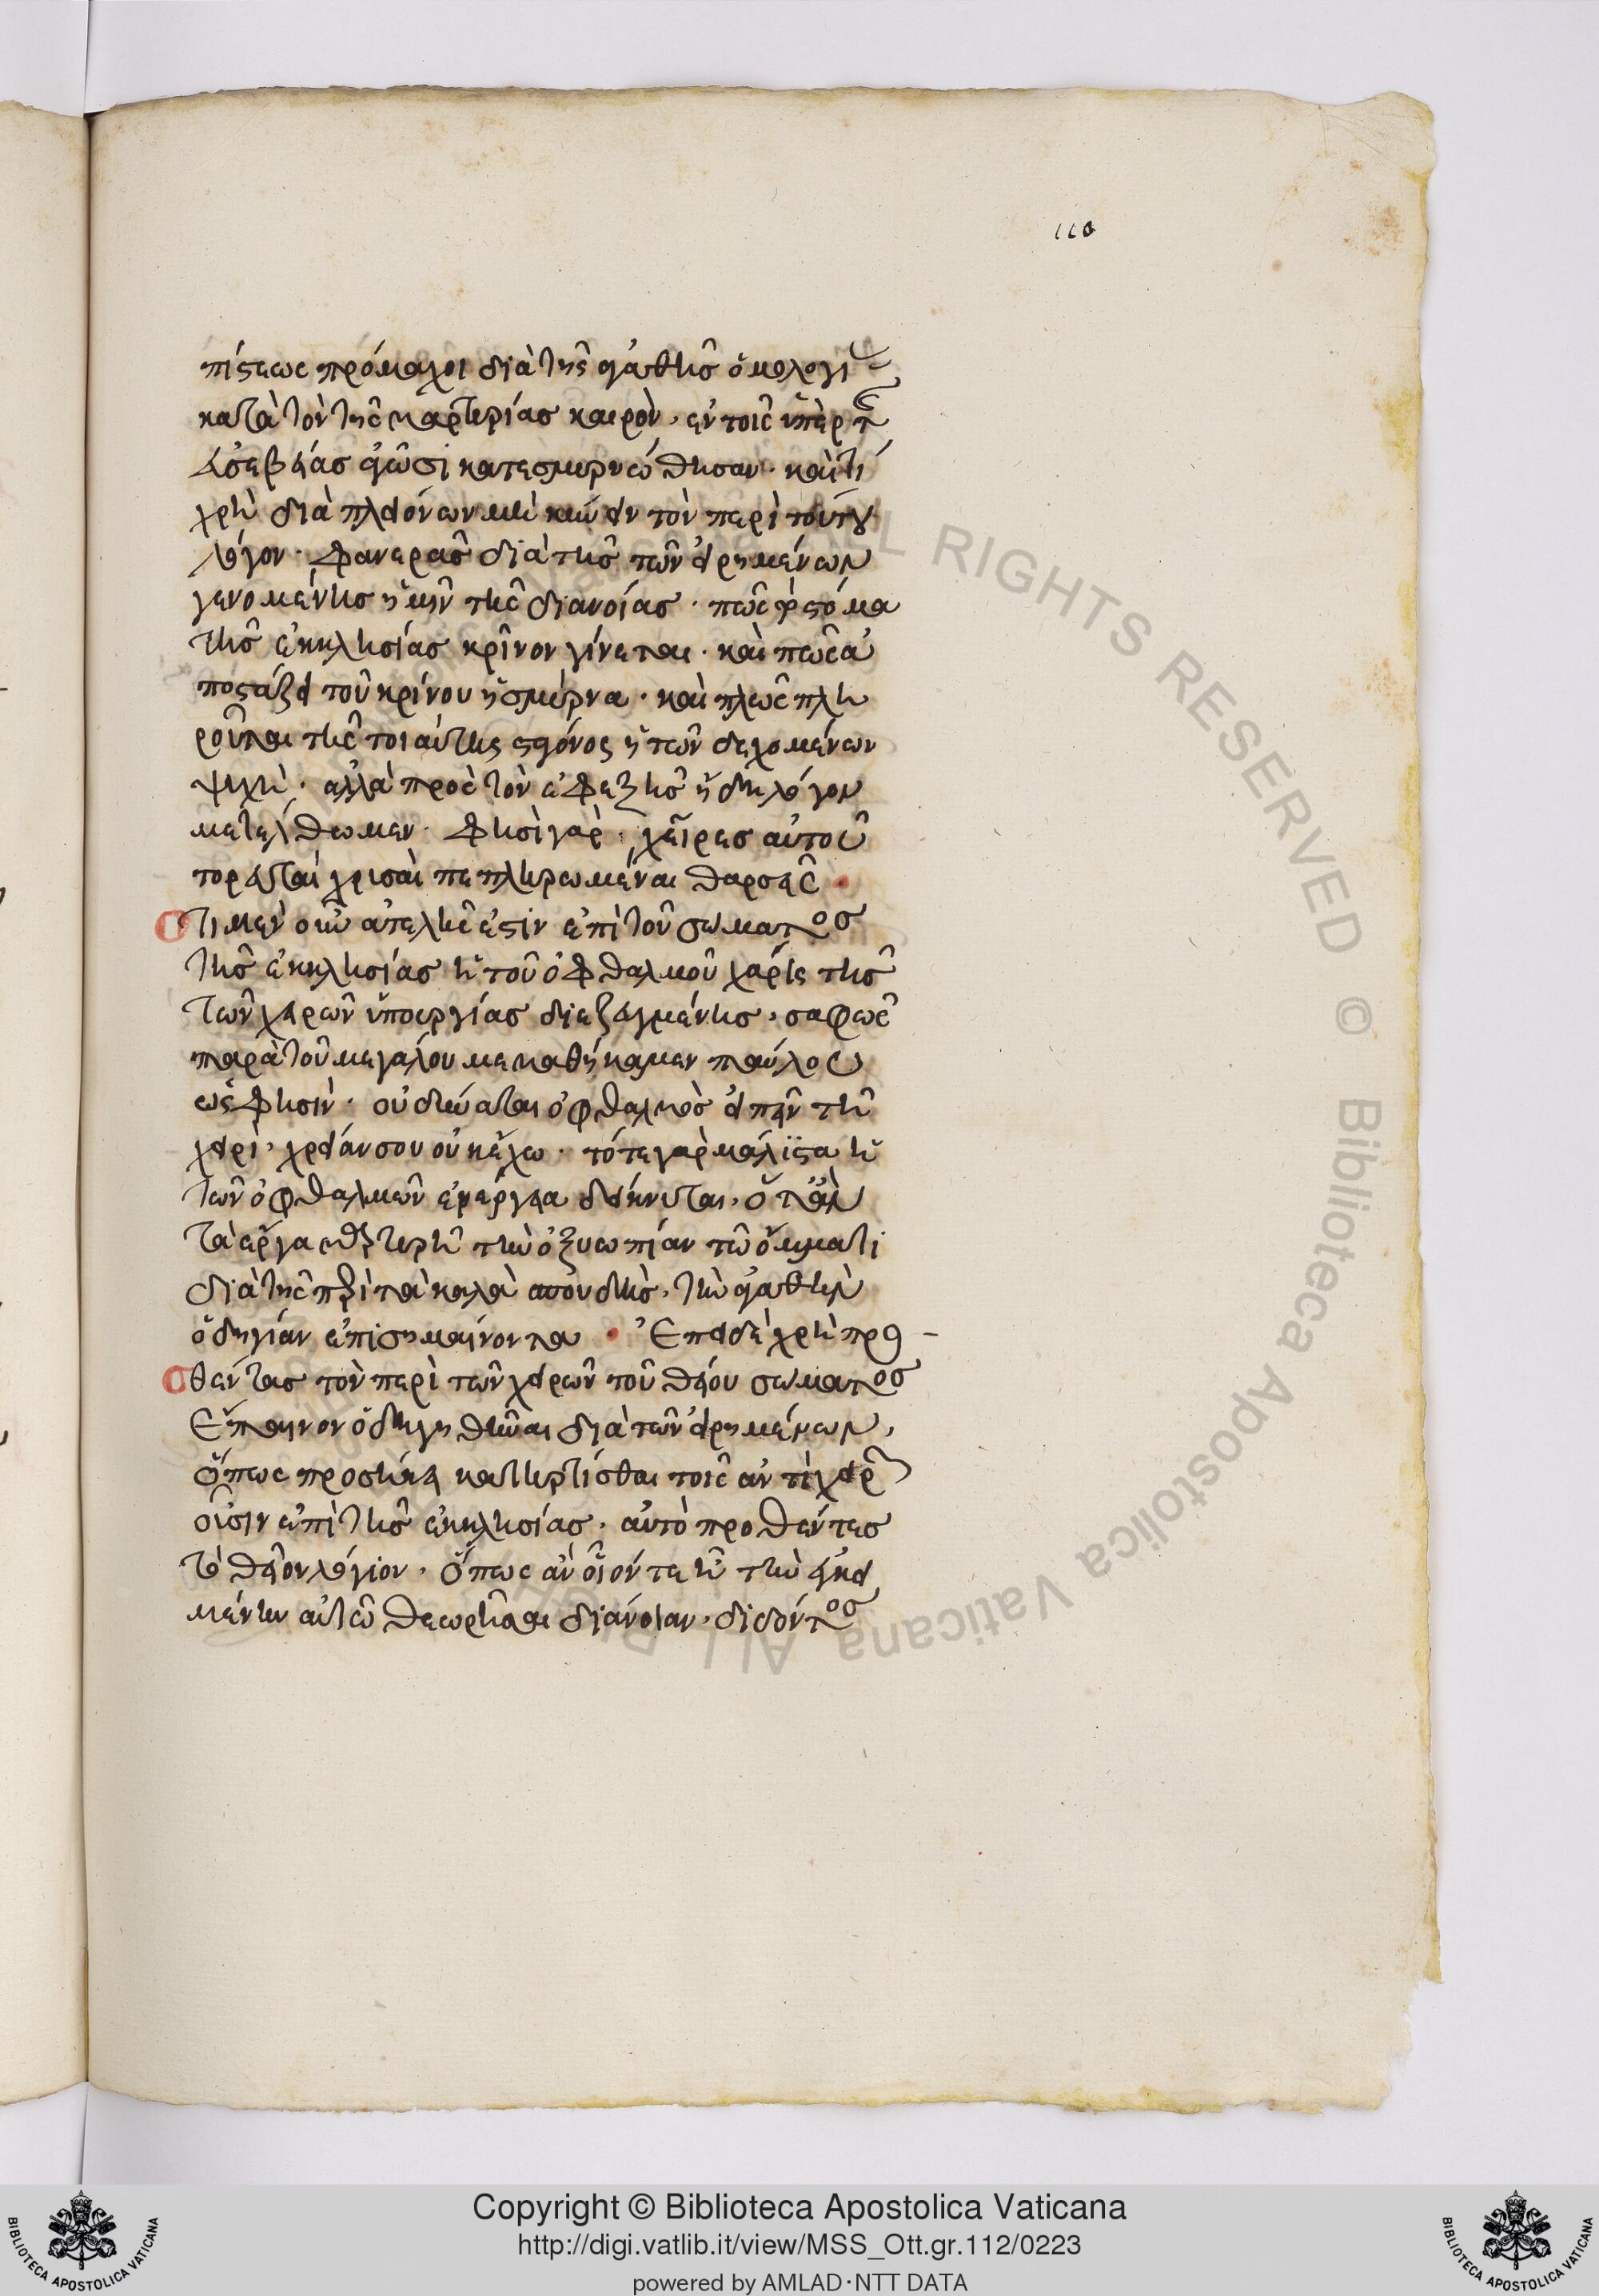 110
πίστεως πρόμαχοι διὰ τῆς ἀγαθῆς ὁμολογί
κατὰ τὸν τῆς μαρτυρίας καιρὸν, ἐν τοῖς ὑπὲρ τ
εὐσεβείας ἀγῶσι κατεσμυρνώθησαν. καὶ τί
χρὴ διὰ πλειόνων μηκύνειν τὸν περὶ τούτου
λόγον. φανερᾶς διὰ τῆς τῶν εἰρημένων
γενομένης ἡμῖν τῆς διανοίας. πῶς τὸ στόμα
τῆς ἐκκλησίας κρῖνον γίνεται. καὶ πῶς ἀ
ποστάζει τοῦ κρίνου ἡ σμύρνα. καὶ πῶς πλη
ροῦται τῆς τοιαύτης σταγόνος ἡ τῶν δεχομένων
ψυχή. ἀλλὰ πρὸς τὸν ἐφεξῆς ἤδη λόγον
μετέλθωμεν. φησὶ γάρ, χεῖρες αὐτοῦ
τορευταὶ χρυσαῖ πεπληρωμέναι θαρσεῖς.
Ὅτι μὲν οὖν ἀτελής ἐστιν ἐπὶ τοῦ σώματος
τῆς ἐκκλησίας ἡ τοῦ ὀφθαλμοῦ χάρις τῆς
τῶν χειρῶν ὑπουργίας διεζευγμένης, σαφῶς
παρὰ τοῦ μεγάλου μεμαθήκαμεν παύλου
ὥς φησιν. οὐ δύναται ὀφθαλμὸς εἰπεῖν τῇ
χειρί, χρείαν σου οὐκ ἔχω. τότε γὰρ μάλιστα ἡ
τῶν ὀφθαλμῶν ἐνέργεια δείκνυται, ὅταν
τὰ ἔργα μαρτυρῇ τὴν ὀξυωπίαν τῷ ὄμματι
διὰ τῆς περὶ τὰ καλὰ σπουδῆς, τὴν ἀγαθὴν
ὁδηγίαν ἐπισημαίνοντα. Ἐπειδὴ χρὴ προ
θέντας τὸν περὶ τῶν χειρῶν τοῦ θείου σώματος
ἔπαινον ὁδηγηθῆναι διὰ τῶν εἰρημένων,
ὅπως προσήκει κατηρτίσθαι τοῖς ἀντὶ χειρ
οὖσιν ἐπὶ τῆς ἐκκλησίας, αὐτὸ προθέντες
τὸ θεῖον λόγιον, ὅπως ἂν οἷόν τε ᾖ τὴν ἐγκει
μένην αὐτῷ θεωρῆσαι διάνοιαν, διδόντος
ALL RIGHTS RESERVED © Biblioteca Apostolica Vaticana
Copyright © Biblioteca Apostolica Vaticana
http://digi.vatlib.it/view/MSS_Ott.gr.112/0223
powered by AMLAD·NTT DATA
BIBLIOTECA APOSTOLICA VATICANA
BIBLIOTECA APOSTOLICA VATICANA